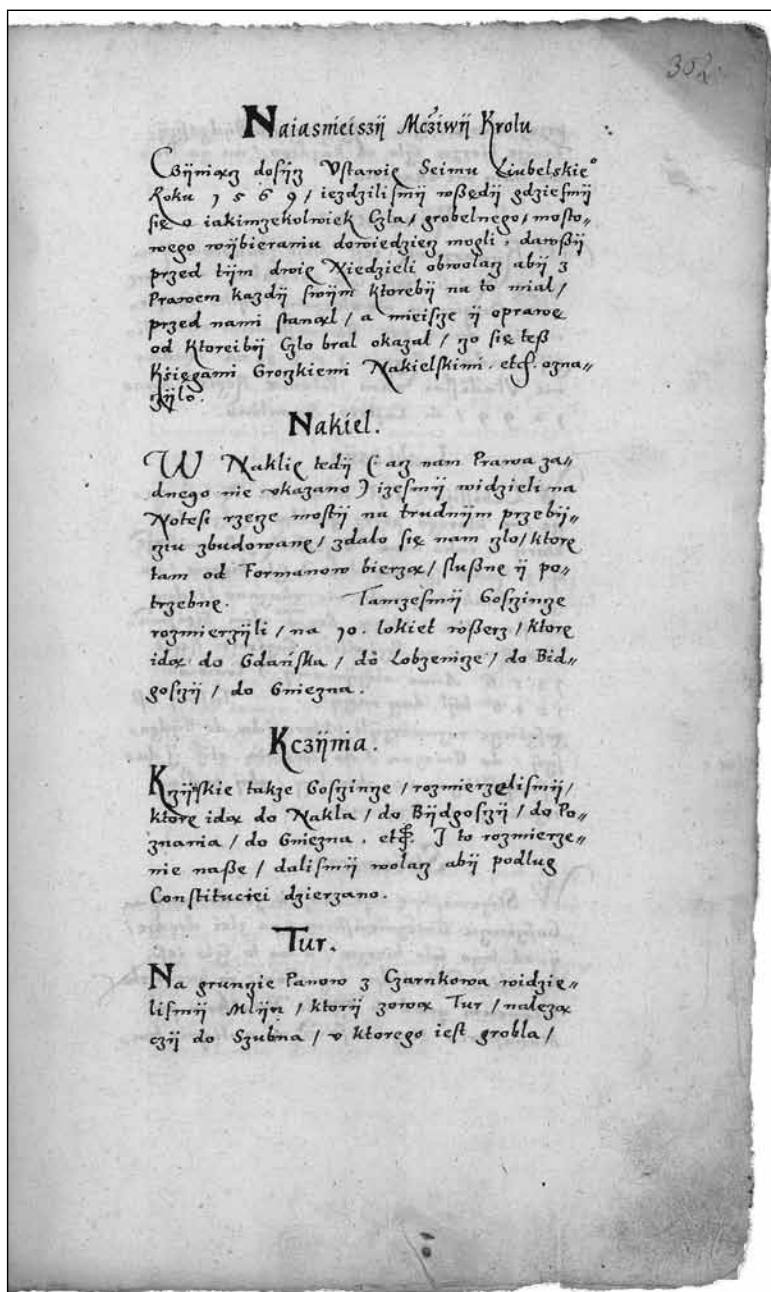 302.
Naiasnieiszÿ Mcżiwÿ Krolu
Czÿniącz dosÿcz Vstawie Seimu Liubelskieᵒ
Roku 1569 / iezdzilismÿ wßędÿ gdziesmÿ
się o iakimzekolwiek Czla / grobelnego / mosto⸗
wego wÿbieraniu dowiedziecz mogli, dawßÿ
przed tÿm dwie Niedzieli obwolacz abÿ z
Prawem kazdÿ swÿm ktorebÿ na to mial /
przed nami stanąl / a mieisce ÿ oprawę
od ktoreibÿ Czlo bral okazal / czo się teß
Księgami Groczkiemi Nakielskimi. etc. ozna⸗
czÿlo.
Nakiel.
W Naklie tedÿ (acz nam Prawa za⸗
dnego nie vkazano) izesmÿ widzieli na
Notesi rzecze mostÿ na trudnÿm przebÿ⸗
cziu zbudowane / zdalo się nam czlo / ktore
tam od Formanow bierzą / slußne ÿ po⸗
trzebne. Tamzesmÿ Gosczincze
rozmierzÿli / na 10. lokiet wßerz / ktore
idą do Gdańska / do Lobzenicze / do Bid⸗
gosczÿ / do Gniezna.
Kczÿnia.
Kczÿskie takze Gosczincze / rozmierzelismÿ /
ktore idą do Nakla / do Bÿdgosczÿ / do Po⸗
znania / do Gniezna. etc. I to rozmierze⸗
nie naße / dalismÿ wolacz abÿ podlug
Constituciei dzierzano.
Tur.
Na gruncie Panow z Czarnkowa widzie⸗
lismÿ Mlÿn / ktorÿ zową Tur / nalezą
czÿ do Szubna / v ktorego iest grobla /